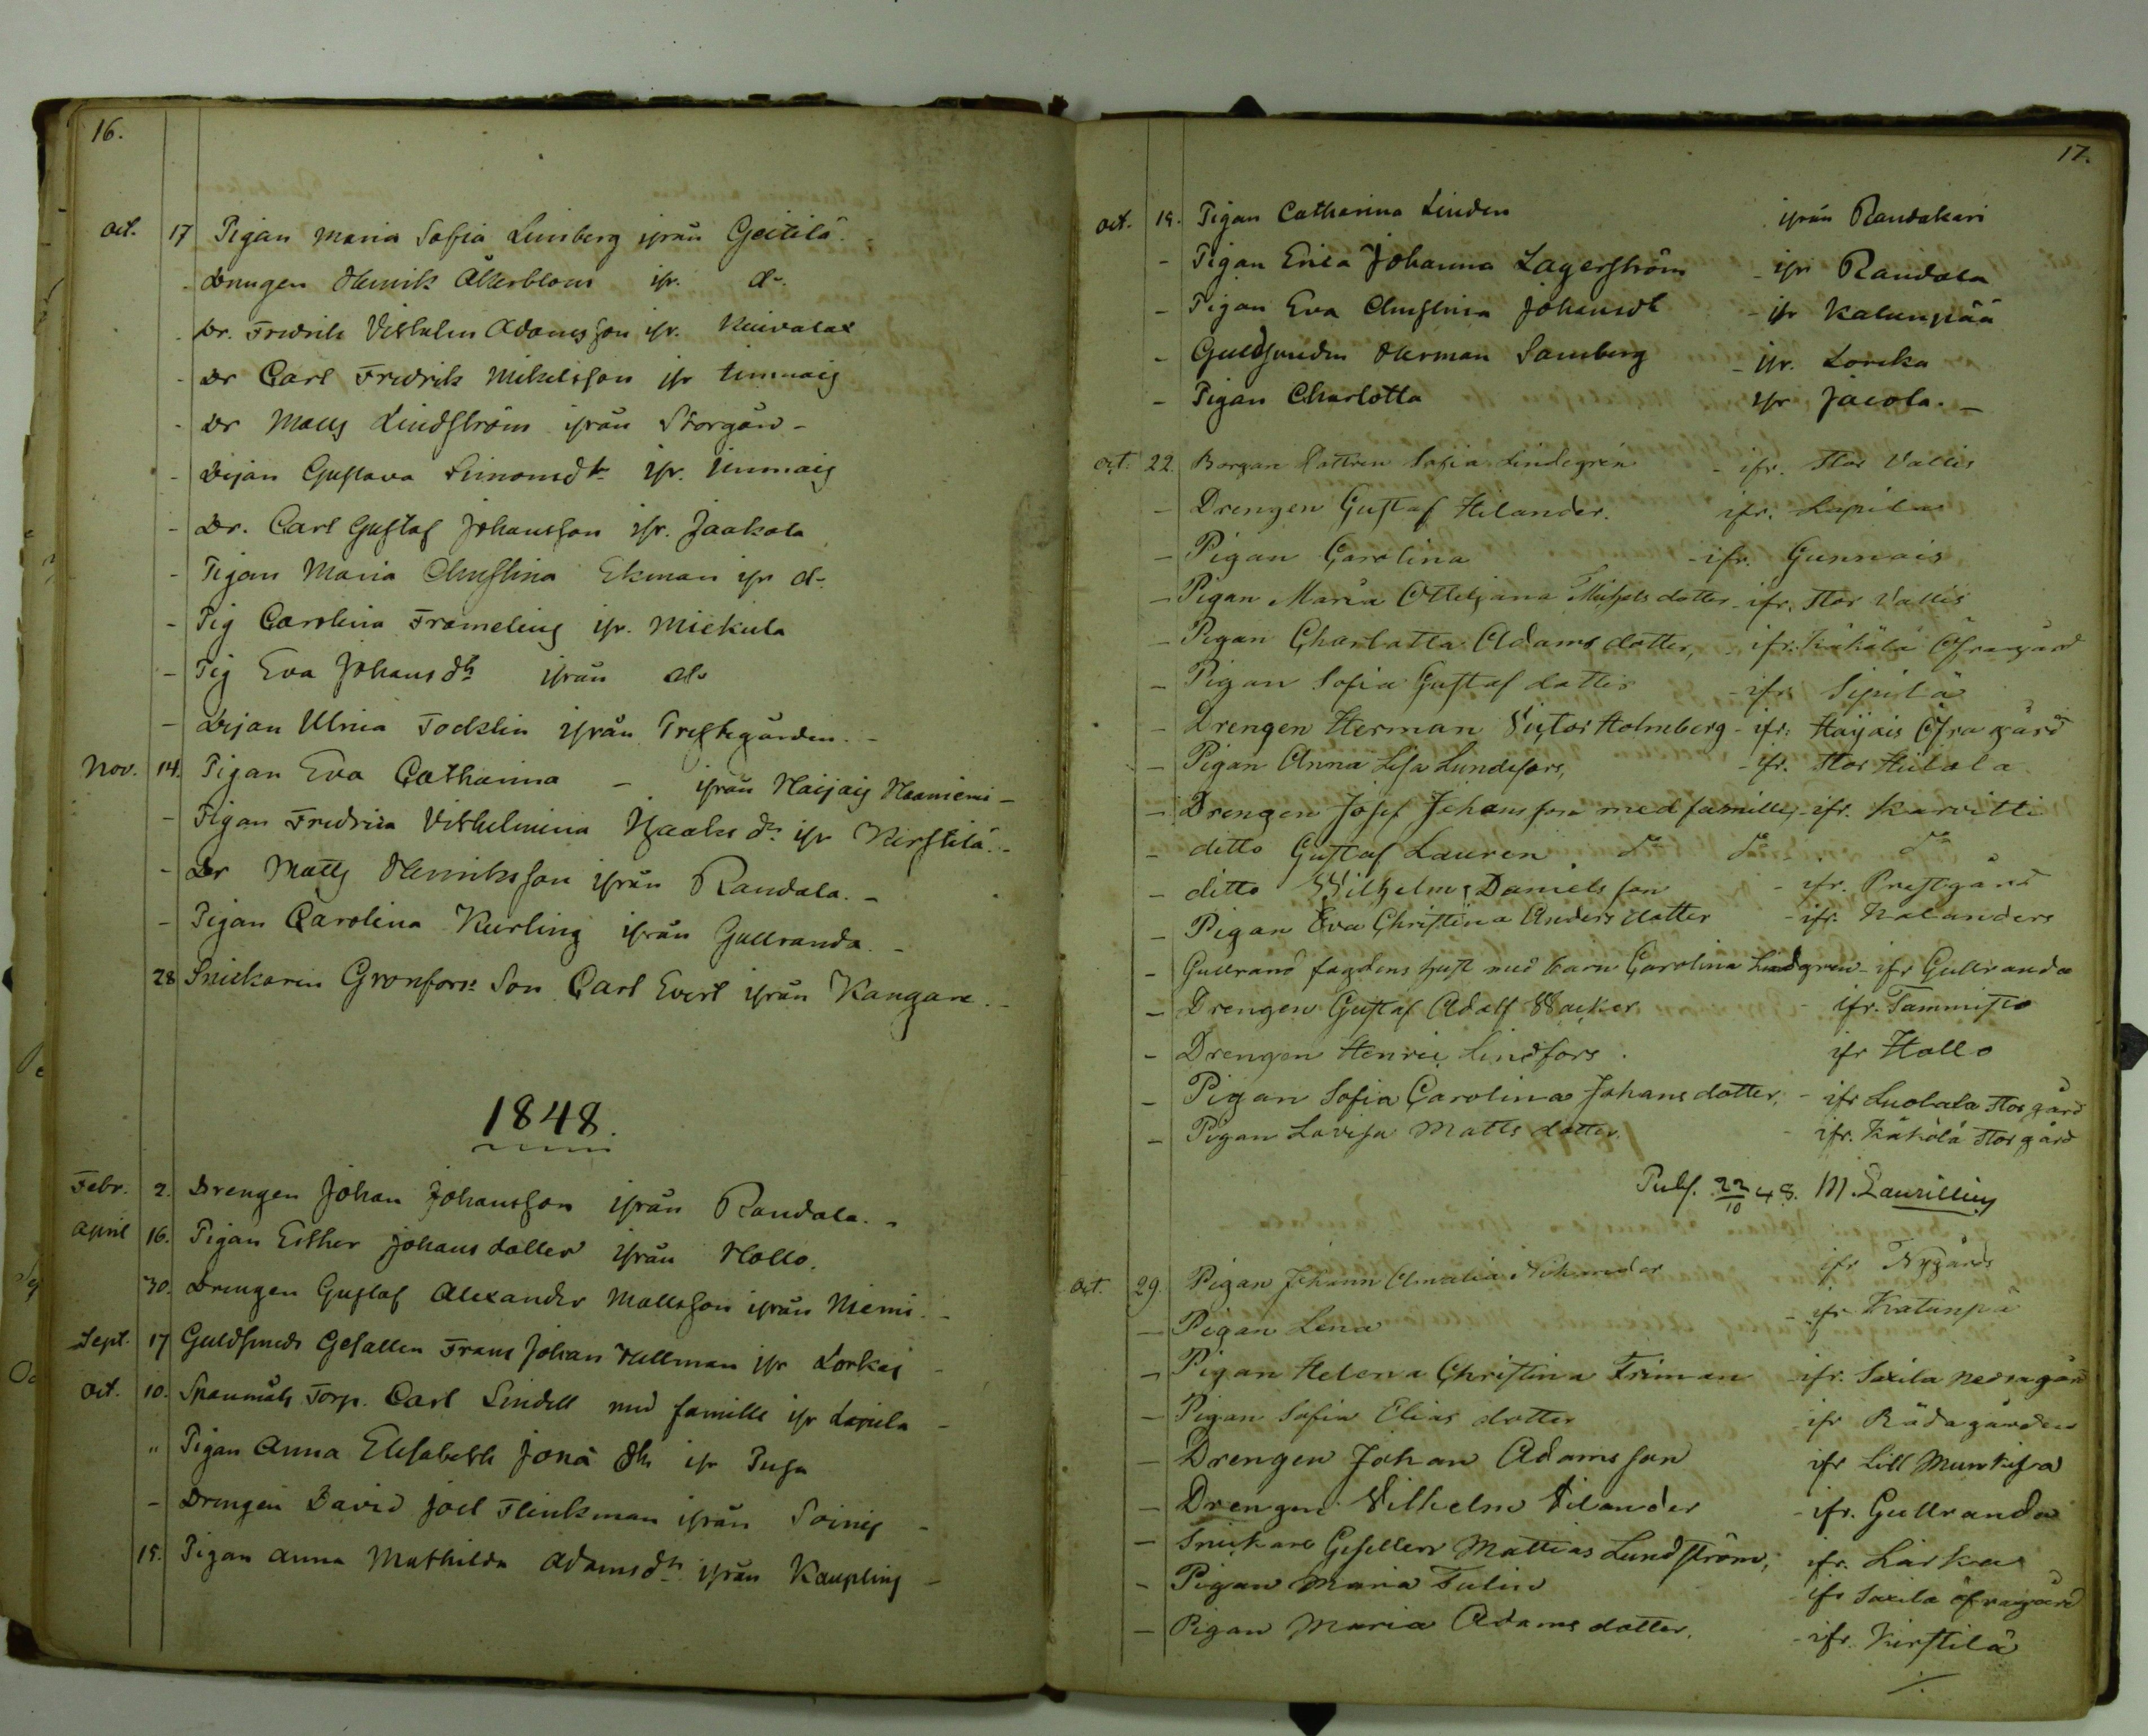 16.
Oct. 17 Pigan Maria Sofia Limberg ifrån Geitilä.
- Drengen Henrik Åkerblom ifr. do.
- Dr. Fredrik Vilhelm Adamsson ifr.
- Dr Carl Fredrik Mikelsson ifr
- Dr Matts Lindström ifrån Storgån -
- Gustava Simonsdtr ifr.
- Dr. Carl Gustaf Johansson ifr. Jaakola
- Pigan Maria Christina Ekman ifr do
- Pig Carolina Frameling ifr. Mickula
- Pig Eva Johansdtr ifrån do
- Ulrica ifrån Prestegården. -
Nov. 14. Pigan Eva Catharina - ifrån Haijais Haaniemi -
- Pigan Fredrica Vilhelmina Isaaks dr ifr Kirstilä. -
- Dr Matts Henriksson ifrån Randala. -
- Pigan Carolina Kurling ifrån Gullranda. -
28 Snickaren Gronfors Son Carl Evert ifrån Kangare. -
1848.
Febr. 2. Drengen Johan Johansson ifrån Randala. -
April 16. Pigan Esther Johansdotter ifrån Hollo.
30. Drengen Gustaf Alexander Mattsson ifrån Niemi. -
Sept. 17 Guldsmeds Gesällen Frans Johan Hellman ifr Lorkas -
Oct. 10. Torp. Carl Lindell med famille ifr Lapila -
" Pigan Anna Elisabeth Jonä dtr ifr
- Drengen David Joel Flinkman ifrån Soinis -
15. Pigan Anna Mathilda Adamsdtr ifrån Kaupling -
17.
Oct. 15. Pigan Catharina Linden ifrån Randakari
- Pigan Erica Johanna Lagerström - ifr Randala
- Pigan Eva Christina Johansdt - ifr Katunpää
- Guldsmeden Herman Samberg - ifr. Lorcka
- Pigan Charlotta ifr Jacola. -
Oct. 22. Borgare Dottren Sofia Lindegrén - ifr. Stor Vallis
- Drengen Gustaf Helander. ifr. Lapila
- Pigan Carolina - ifr. Gunnais
- Pigan Maria Ottiljana Michelsdotter - ifr. Stor Vallis
- Pigan Charlotta Adamsdotter, - ifr. Käkölä Öfragård
- Pigan Sofia Gustaf dotter - ifr. Sipilä
- Drengen Herman Victor Holmberg - ifr. Haijais Öfragård
- Pigan Anna Lisa Lundefors, - ifr. Stor Heikola
- Drengen Josef Johansson med famille, - ifr. Karvitti
- ditto Gustaf Lauren do do do
- ditto Wilhelm Danielsson - ifr. Prestgård
- Pigan Eva Christina Andersdotter - ifr. Kalanders
- Gullrand fagdens hust med barn Carolina Lindgren - ifr Gullranda
- Drengen Gustaf Adolf Wacker - ifr. Tammisto
- Drengen Henric Lindfors. ifr Hollo
- Pigan Sofia Carolina Johansdotter, - ifr Luolala Storgård
- Pigan Lovisa Mattsdotter. - ifr. Käkölä Storgård
Publ. 22/10 48. M. Laurillius
Oct. 29. Pigan Johann Amalia ifr Nygård
- Pigan Lena - ifr Katunpä
- Pigan Helena Christina Friman - ifr. Saxila Nedragård
- Pigan Sofia Elias dotter - ifr Rådagården
- Drengen Johan Adamsson ifr Lill Munkisa
- Drengen Vilhelm Silander - ifr. Gullranda
- Snickare Gesellen Mattias Lundström, ifr. Larka
- Pigan Maria Tulin ifr Saxila öfragård
- Pigan Maria Adamsdotter. - ifr. Kirstilä